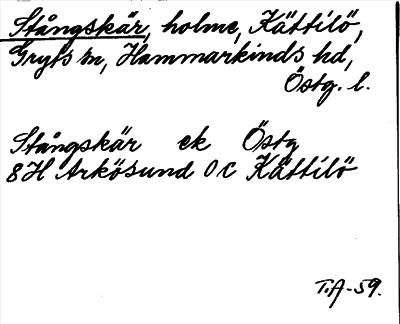 Stångskär, holme, Kättilö,
Gryts sn, Hammarkinds hd,
Östg. l.
Stångskär ek Östg
8H Arkösund 0c Kättilö
T.A-59.